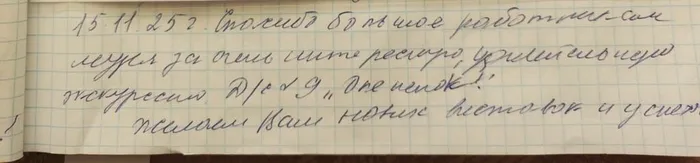 15.11.25 г. Спасибо большое работникам
музея за очень интересную, удивительную
экскурсию Д/с № 9 „Опенок“!
Желаем Вам новых выставок и успех